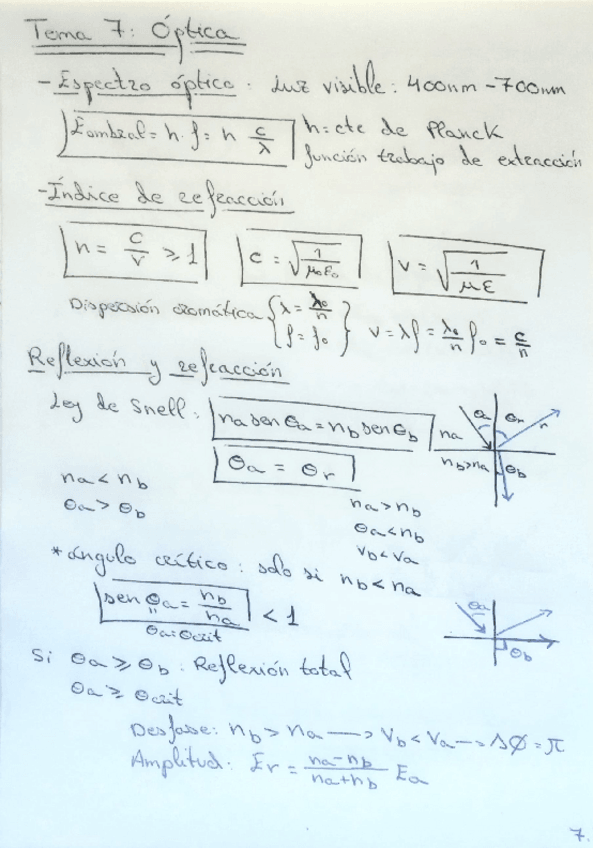 Tema 7: Óptica
- Espectro óptico: Luz visible: 400nm - 700nm
Eumbral = h · f = h c/λ h = cte de Planck
función trabajo de extracción
- Índice de refracción
n = c/v ≥ 1 c = √(1/μ₀ε₀) v = √(1/με)
Dispersión cromática { λ = λ₀/n f = f₀ } v = λf = λ₀/n f₀ = c/n
Reflexión y refracción
Ley de Snell: na sen θa = nb sen θb
θa = θr
na θa θr r
nb>na θb
na < nb
θa > θb
na > nb
θa < nb
vb < va
* ángulo crítico: solo si nb < na
sen θa = nb/na < 1
θa = θcrit
θa
θb
Si θa ≥ θb: Reflexión total
θa ≥ θcrit
Desfase: nb > na → vb < va → Δø = π
Amplitud: Er = na-nb/na+nb Ea
7.